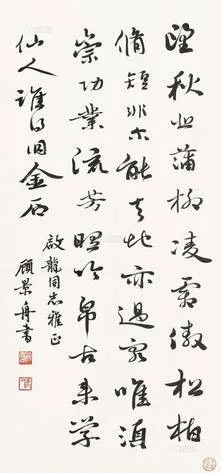 望秋悲蒲柳凌霜傲松柏
脩短非能此亦過客唯須
崇功業流芳照竹帛古來學
仙人誰得固金石
啟龍同志雅正
顧景舟書